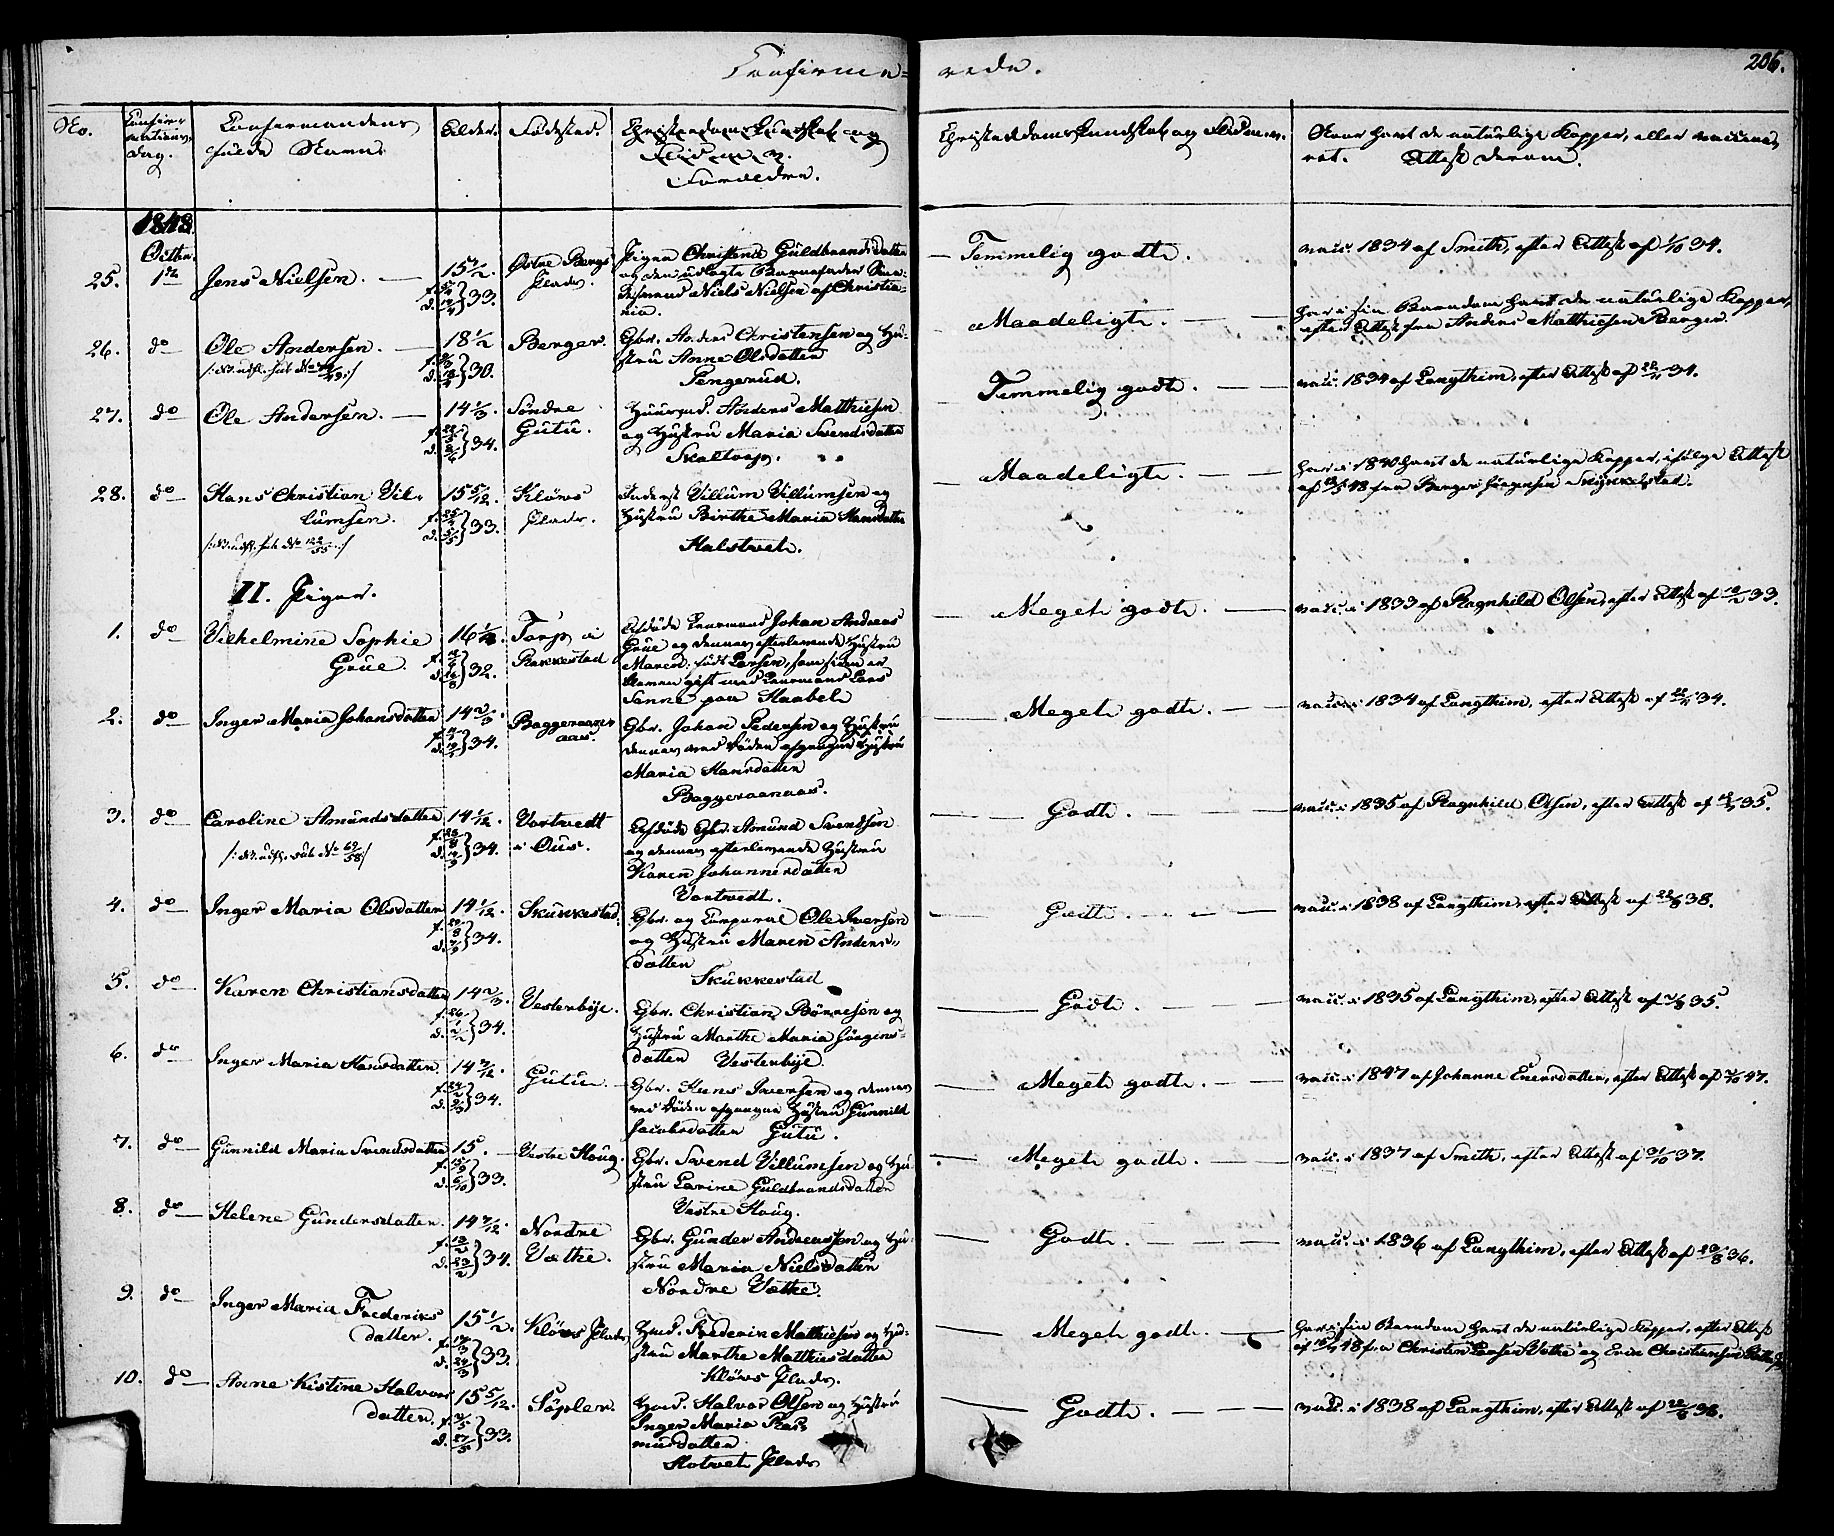 Confirme=
rede.
206.
No.
Confir-
mations
dag.
Confirmandens
fulde Navn.
Alder.
Födested.
Christendomskundskab og
Flid m. v.
Forældre.
Christendomskundskab og Flid m. v.
Naar havt de naturlige Kopper, eller vaccine-
ret. Attest derom.
1848
Octbr.
25. 1ste Jens Nielsen. — 15 1/2.
33.
Östre Bergs
Plads.
Pigen Christense Guldbrandsdatter
og den udlagte Barnefader
Niels Nielsen af Christia-
nia.
— Temmelig godt.
vacc. 1834 af Smith, efter Attest af 1/10 34.
26. do Ole Andersen. — 18 1/2
30.
Berger.
Gbr. Anders Christensen og Hu-
stru Anne Olsdatter
Pengerud.
Maadeligt. —
har i sin Barndom havt de naturlige Kopper,
efter Attest fra Anders Matthiesen Berger.
27. do Ole Andersen. — 14 1/3.
34.
Söndre
Gutu.
Huusmd. Anders Matthiesen
og Hustru Maria Svendsdatter
Skaltorp.
Temmelig godt. —
vacc. 1834 af Langthim, efter Attest af 22/11 34.
28. do Hans Christian Vil-
lumsen.
15 5/12.
33.
Klövs
Plads.
Inderst Villum Villumsen og
Hustru Birthe Maria Hansdatter
Halstvet.
Maadeligt. —
har i 1840 havt de naturlige Kopper, ifölge Attest
48 fra Berger Jörgensen Skukkestad.
II. Piger.
1. do Vilhelmine Sophie
Grue.
32.
Torp i
Rakkestad
Afdöde Lensmand Johan Andreas
Grue og dennes efterlevende Hustru
Maren, född Larsen, som siden er
bleven gift med Lensmand Lars
Senne paa Haabet
— Meget godt. —
vacc. i 1833 af Ragnhild Olsen, efter Attest af 33.
2. do Inger Maria Johansdatter 14 2/3.
34.
Baggeraaner
aas.
Gbr. Johan Pedersen og Hustru
dennes ved Döden afgangne Hustru
Maria Hansdatter
Baggeraanaas.
— Meget godt. —
vacc. i 1834 af Langthim, efter Attest af 22/11 34.
3. do Caroline Amundsdatter 14 1/12.
34.
Vortvedt
i Ous.
Afdöde Gbr. Amund Svendsen
og dennes efterlevende Hustru
Karen Johannesdatter
Vortvedt.
— Godt. —
vacc. i 1835 af Ragnhild Olsen, efter Attest af 35.
4. do Inger Maria Olsdatter 14 1/12.
34.
Skukkestad.
Gbr. og Corporal Ole Iversen
og Hustru Maren Anders-
datter
Skukkestad
— Godt. —
vacc. i 1838 af Langthim, efter Attest af 22/8 38.
5. do Karen Christiansdatter 14 2/3.
34.
Vesterbye.
Gbr. Christian Börresen og
Hustru Marthe Maria Jörgens-
datter Vesterbye.
— Godt. —
vacc. i 1835 af Langthim, efter Attest af 35.
6. do Inger Maria Hansdatter. 14 7/12.
34.
Gutu.
Gbr. Hans Iversen og dennes
ved Döden afgangne Hustru Gunnild
Jacobsdatter Gutu.
— Meget godt. —
vacc. i 1847 af Johanne Enersdatter, efter Attest af 47.
7. do Gunnild Maria Svendsdatter 15.
33.
Vestre Houg.
Gbr. Svend Villumsen og Hu-
stru Larine Guldbrandsdatter
Vestre Houg.
— Meget godt. —
vacc. i 1837 af Smith, efter Attest af 31/10 37.
8. do Helene Gundersdatter. 14 7/12.
34.
Nordre
Vathe.
Gbr. Gunder Andreassen og Hu-
stru Maria Nielsdatter
Nordre Vathe.
— Godt. —
vacc. i 1836 af Langthim, efter Attest af 36.
9. do Inger Maria Frederiks
datter.
15 1/2.
33.
Klövs Plads
Hmd. Frederik Matthiesen og Hu-
stru Marthe Matthiesdatter
Klövs Plads.
— Meget godt. —
Har i sin Barndom havt de naturlige Kopper, efter Attest
48 fra Christen Larsen Vethe og Even Christiansen
10. do Anne Kistine Halvors
datter.
15 5/12.
33.
Söpler.
Hmd. Halvor Olsen og Hustru
Inger Maria Ras-
musdatter
Hotvet Plads
— Godt. —
vacc. i 1838 af Langthim, efter Attest af 22/8 38.